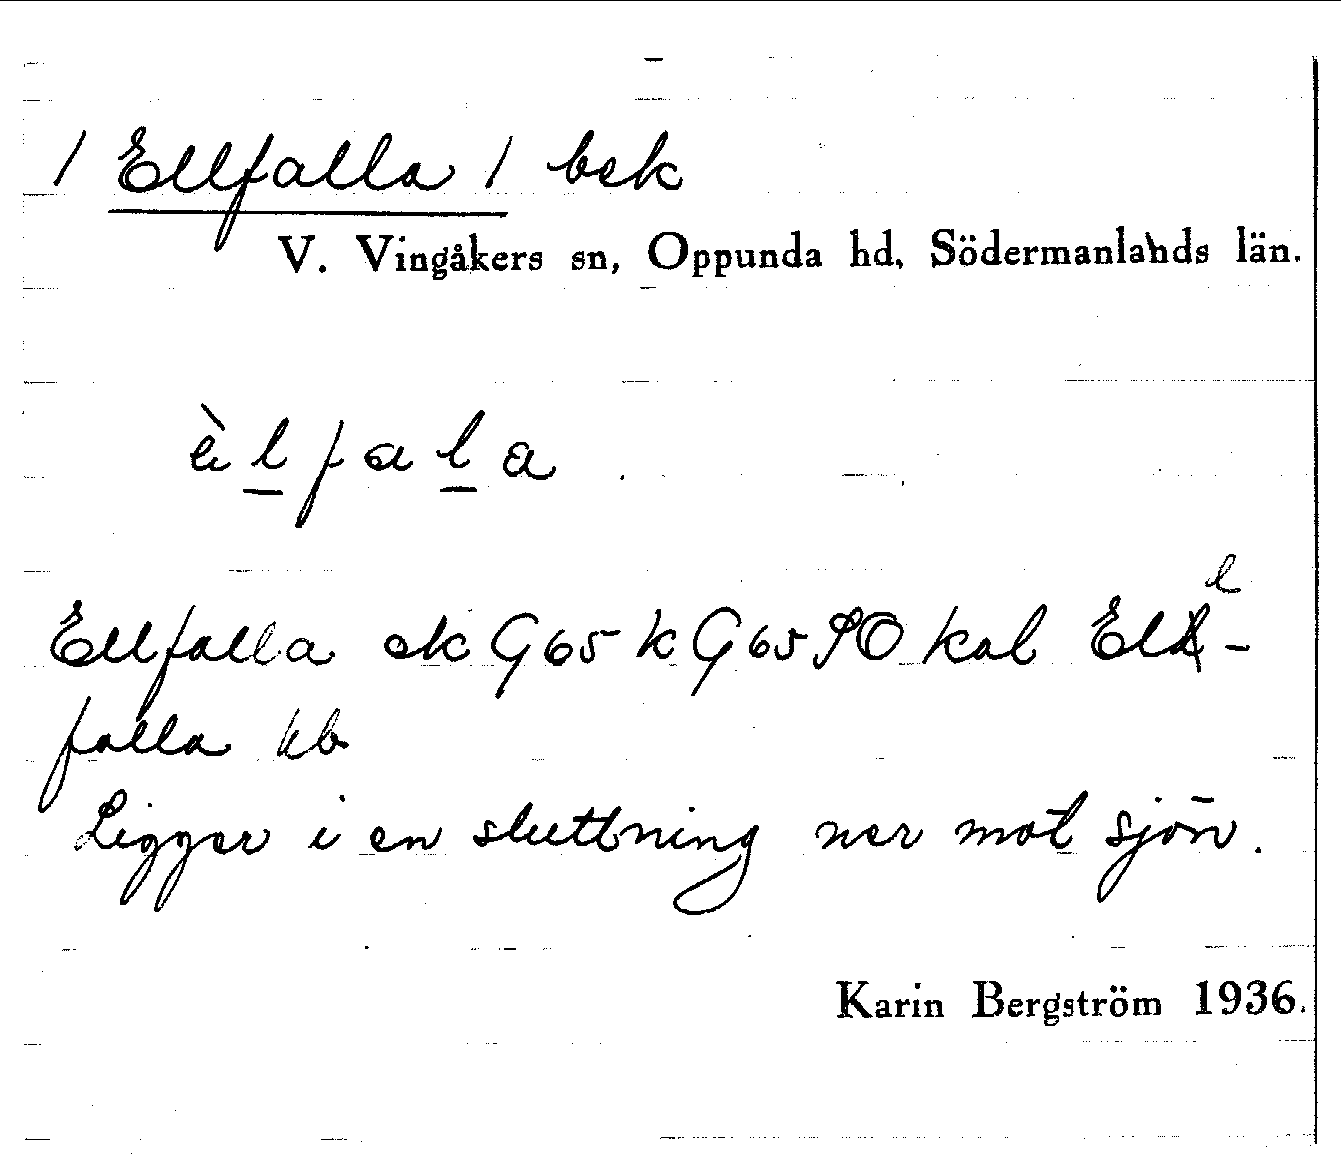 / Ellfalla / bsk
V. Vingåkers sn, Oppunda hd, Södermanlands län.
è l f a l a
Ellfalla ek G65 k G65 SO kal Ell-
falla kb
Ligger i en sluttning ner mot sjön.
Karin Bergström 1936.